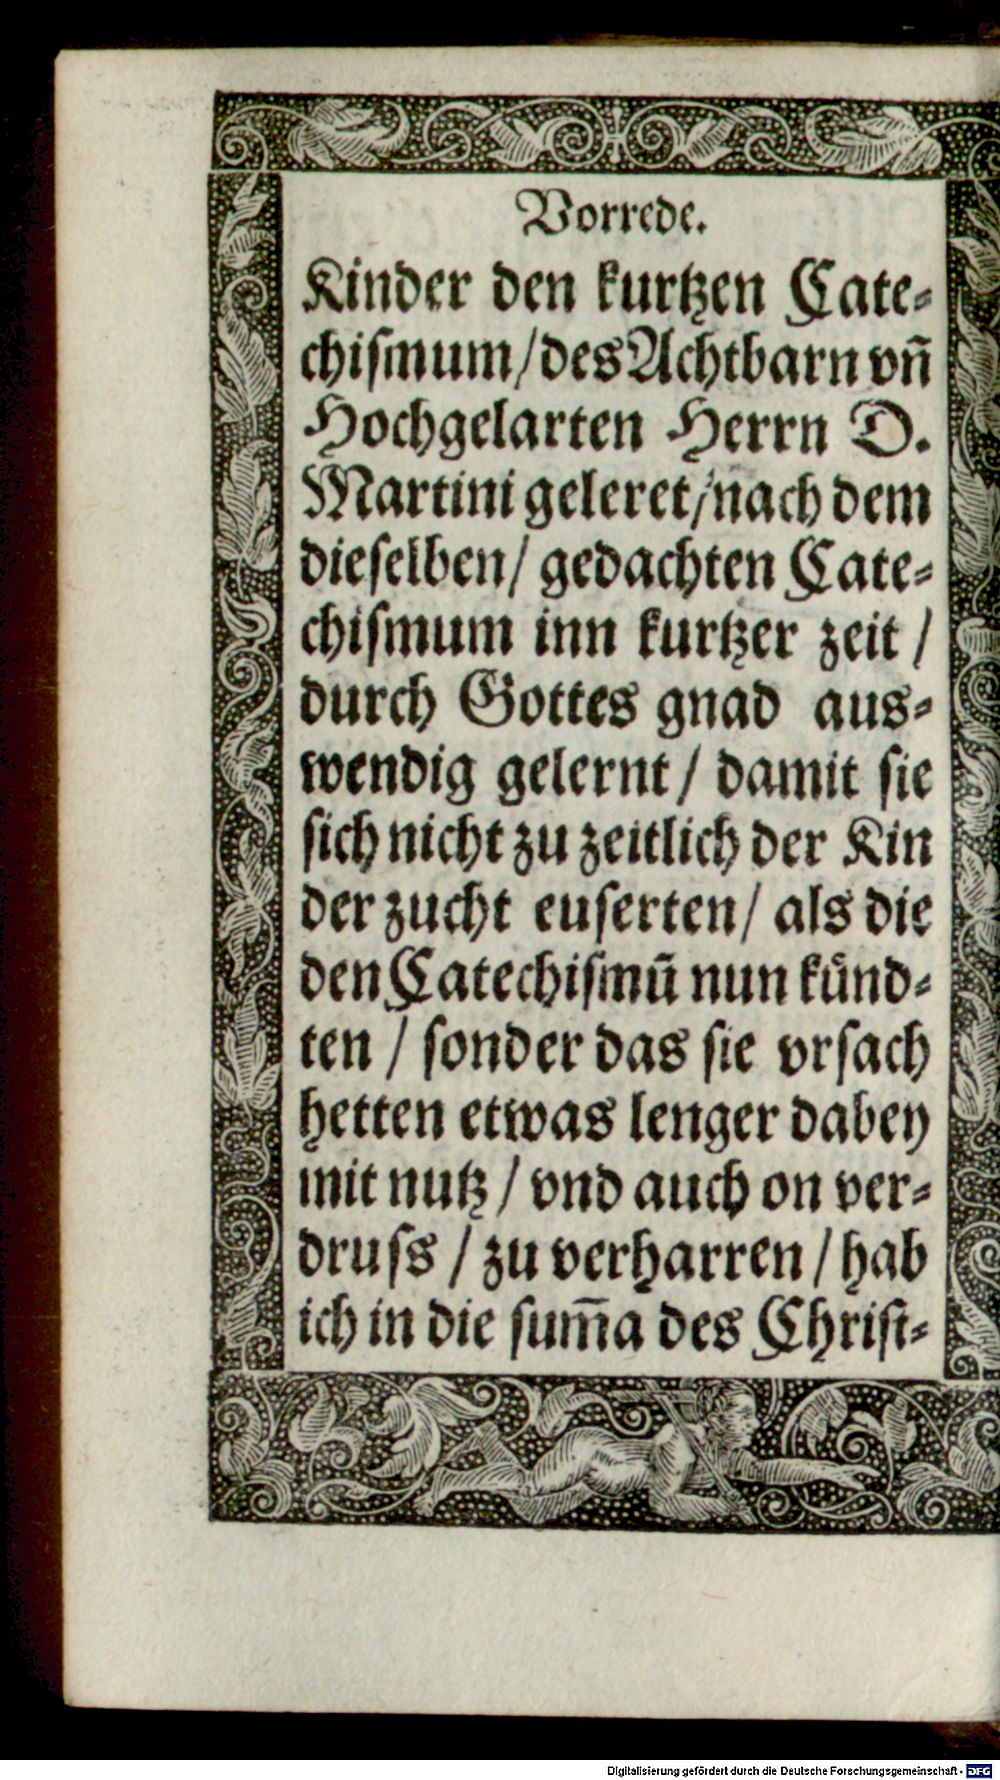 Vorrede.
Kinder den kurtzen Cate⸗
chiſmum/des Achtbarn vn̄
Hochgelarten Herrn D.
Martini geleret/nach dem
dieſelben/ gedachten Cate⸗
chiſmum inn kurtzer zeit /
durch Gottes gnad aus⸗
wendig gelernt / damit ſie
ſich nicht zu zeitlich der Kin
der zucht euſerten/ als die
den Catechiſmū nun künd⸗
ten / ſonder das ſie vrſach
hetten etwas lenger dabey
mit nutz / vnd auch on ver⸗
druſs / zu verharren / hab
ich in die ſum̄a des Chriſt⸗
Digitalisierung gefördert durch die Deutsche Forschungsgemeinschaft - DFG